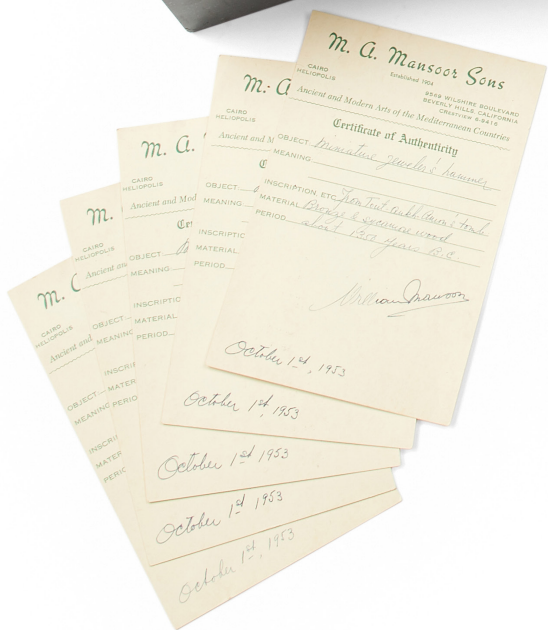 M. A. Mansoor Sons
Established 1904
CAIRO
HELIOPOLIS
8569 WILSHIRE BOULEVARD
BEVERLY HILLS, CALIFORNIA
CRESTVIEW 5-9416
Ancient and Modern Arts of the Mediterranean Countries
Certificate of Authenticity
OBJECT Miniature jeweler's hammer
MEANING
INSCRIPTION, ETC. From Tout-ankh-Amon's tomb
MATERIAL Bronze & Sycamore wood
PERIOD about 1350 years B.C.
October 1st, 1953
M. A
CAIRO
HELIOPOLIS
Ancient and M
OBJECT
MEANING
INSCRIPTIC
MATERIAL
PERIOD
October 1st, 1953
M. A.
CAIRO
HELIOPOLIS
Ancient and Mod
Cer
OBJECT
MEANING
INSCRIPTIO
MATERIAL
PERIOD
October 1st, 1953
M.
CAIRO
HELIOPOLIS
Ancient an
OBJECT
MEANING
INSCRI
MATER
PERIO
October 1st 1953
M
CAIRO
HELIOPOLIS
Ancient and
OBJECT
MEANING
INSCRI
MATER
PERIO
October 1st, 1953